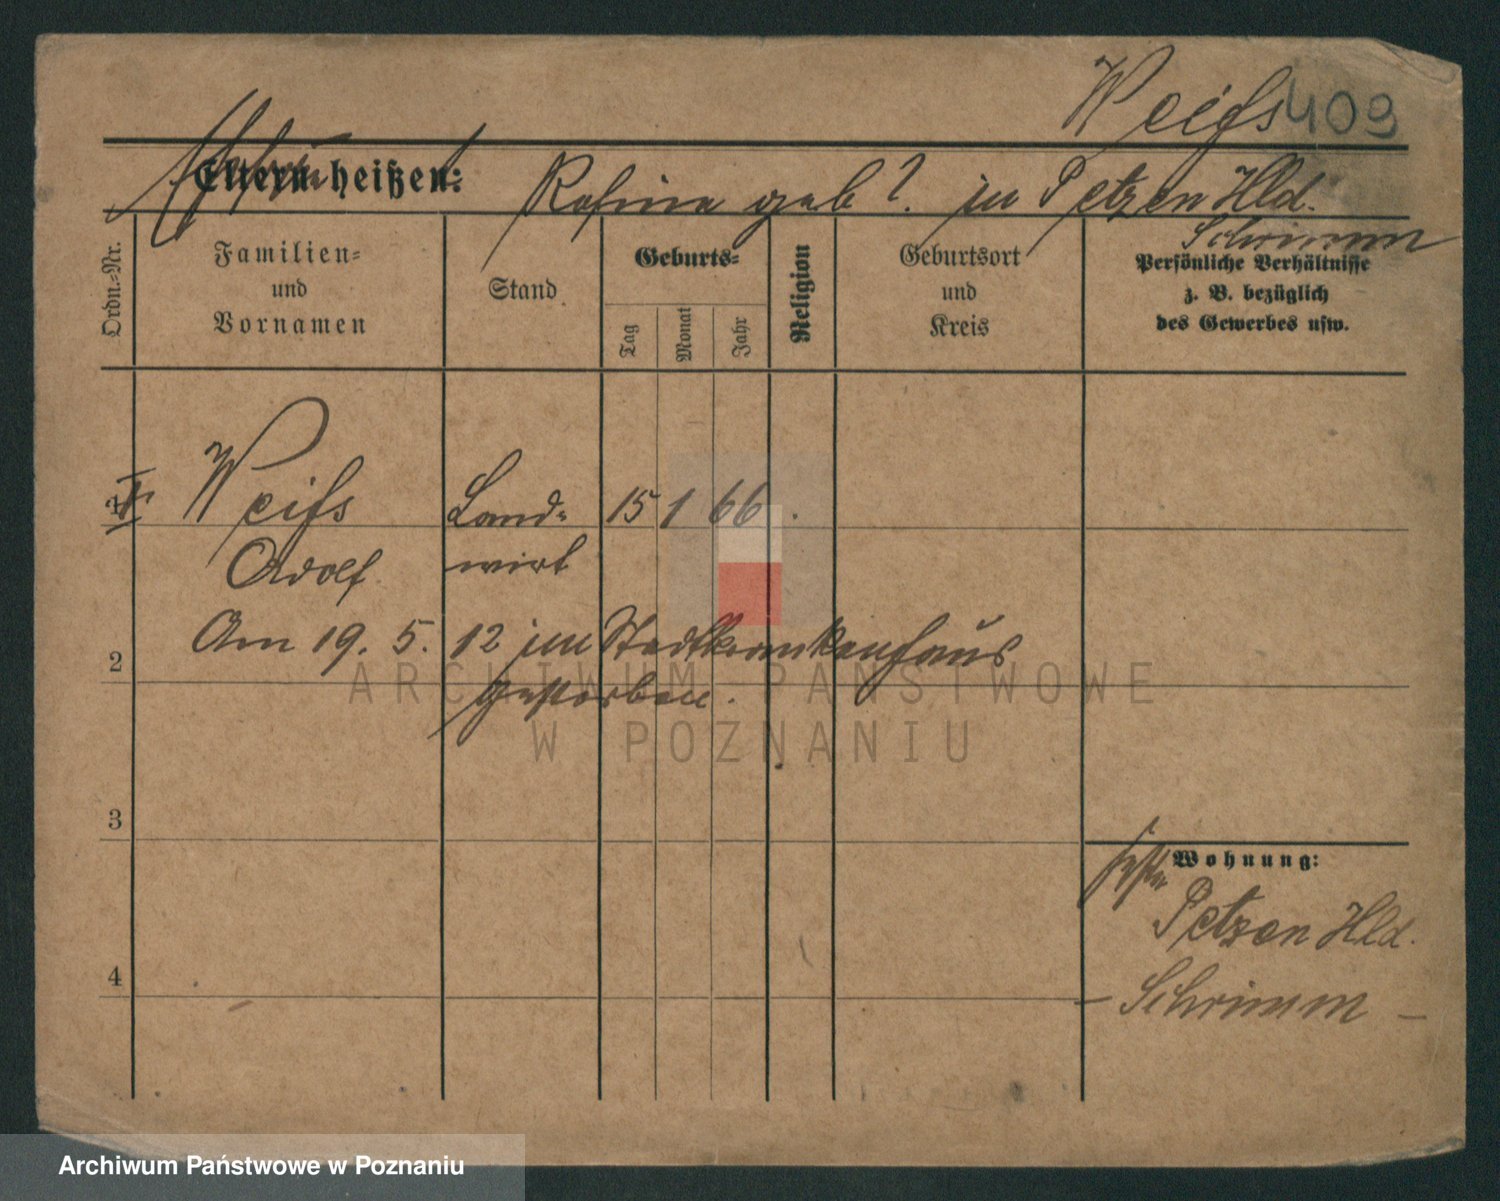 Weiß 409
Eltern heißen: Rosine geb?. in Petzen Hld.
Schrimm
Ordn.-Nr.
Familien-
und
Vornamen
Stand
Geburts-
Tag
Monat
Jahr
Religion
Geburtsort
und
Kreis
Persönliche Verhältnisse
z. B. bezüglich
des Gewerbes usw.
Weiß Land- 15 1 66.
Adolf wirt
Am 19. 5. 12 im Stadtkrankenhaus
2
gestorben.
3
Wohnung:
Petzen Hld.
4
– Schrimm –
ARCHIWUM PAŃSTWOWE
W POZNANIU
Archiwum Państwowe w Poznaniu